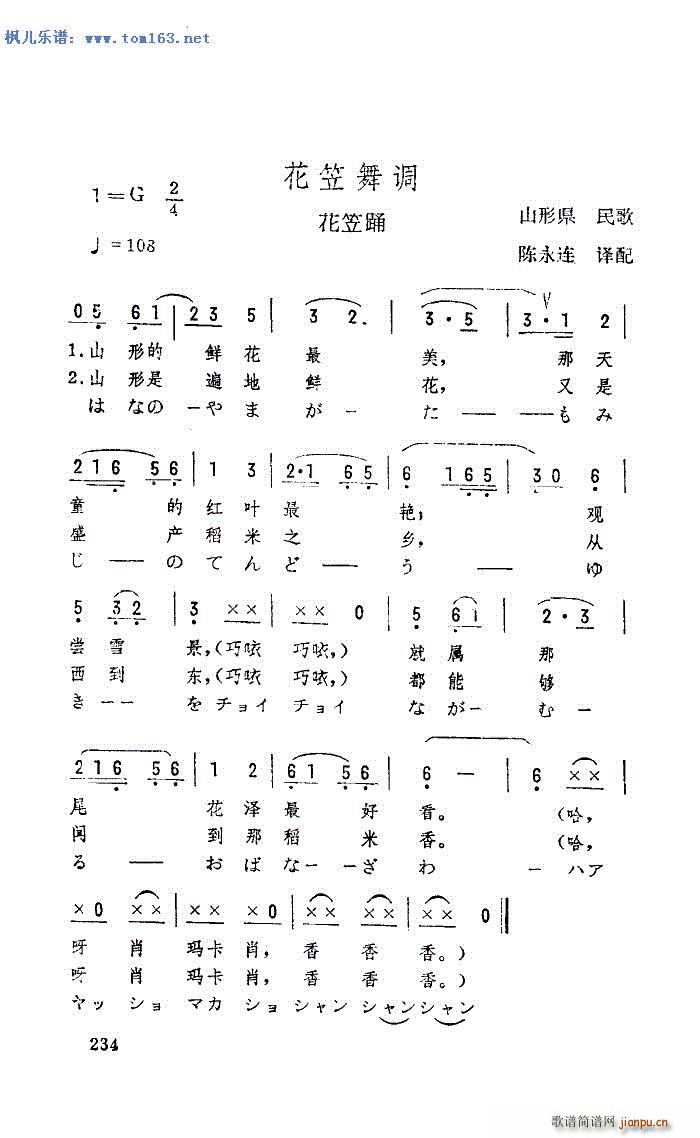 枫儿乐谱: www.tom163.net
花笠舞调
1=G 2/4
花笠踊
山形県 民歌
♩=108
陈永连 译配
0 5 6 1 | 2 3 5 | 3 2. | 3 · 5 | 3 · 1 2 |
1.山 形的 鲜 花 最 美, 那天
2.山 形是 遍 地 鲜 花, 又是
は なの ーや ま が ー た ー ー も み
2 1 6 5 6 | 1 3 | 2·1 6 5 | 6 1 6 5 | 3 0 6 |
童 的 红 叶 最 艳; 观
盛 产 稻 米 之 乡, 从
じ ー ー の て ん ど ー ー う ー ー ゆ
5 3 2 | 3 ×× | ×× 0 | 5 6 i | 2·3 |
尝 雪 景,(巧咴 巧咴,) 就 属 那
西 到 东,(巧咴 巧咴,) 都 能 够
き ー ー を チョイ チョイ な が ー む ー
2 1 6 5 6 | 1 2 | 6 1 5 6 | 6 — | 6 ×× |
尾 花 泽 最 好 看。 (哈,
闻 到 那 稻 米 香。 (哈,
る ー ー お ば な ー ー ざ わ ー ハア
× 0 ×× | ×× × 0 | ×× ×× | ×× 0 ‖
呀 肖 玛卡 肖, 香 香 香。)
呀 肖 玛卡 肖, 香 香 香。)
ヤッ ショ マカ ショ シャン シャンシャン
234
歌谱简谱网 jianpu.cn